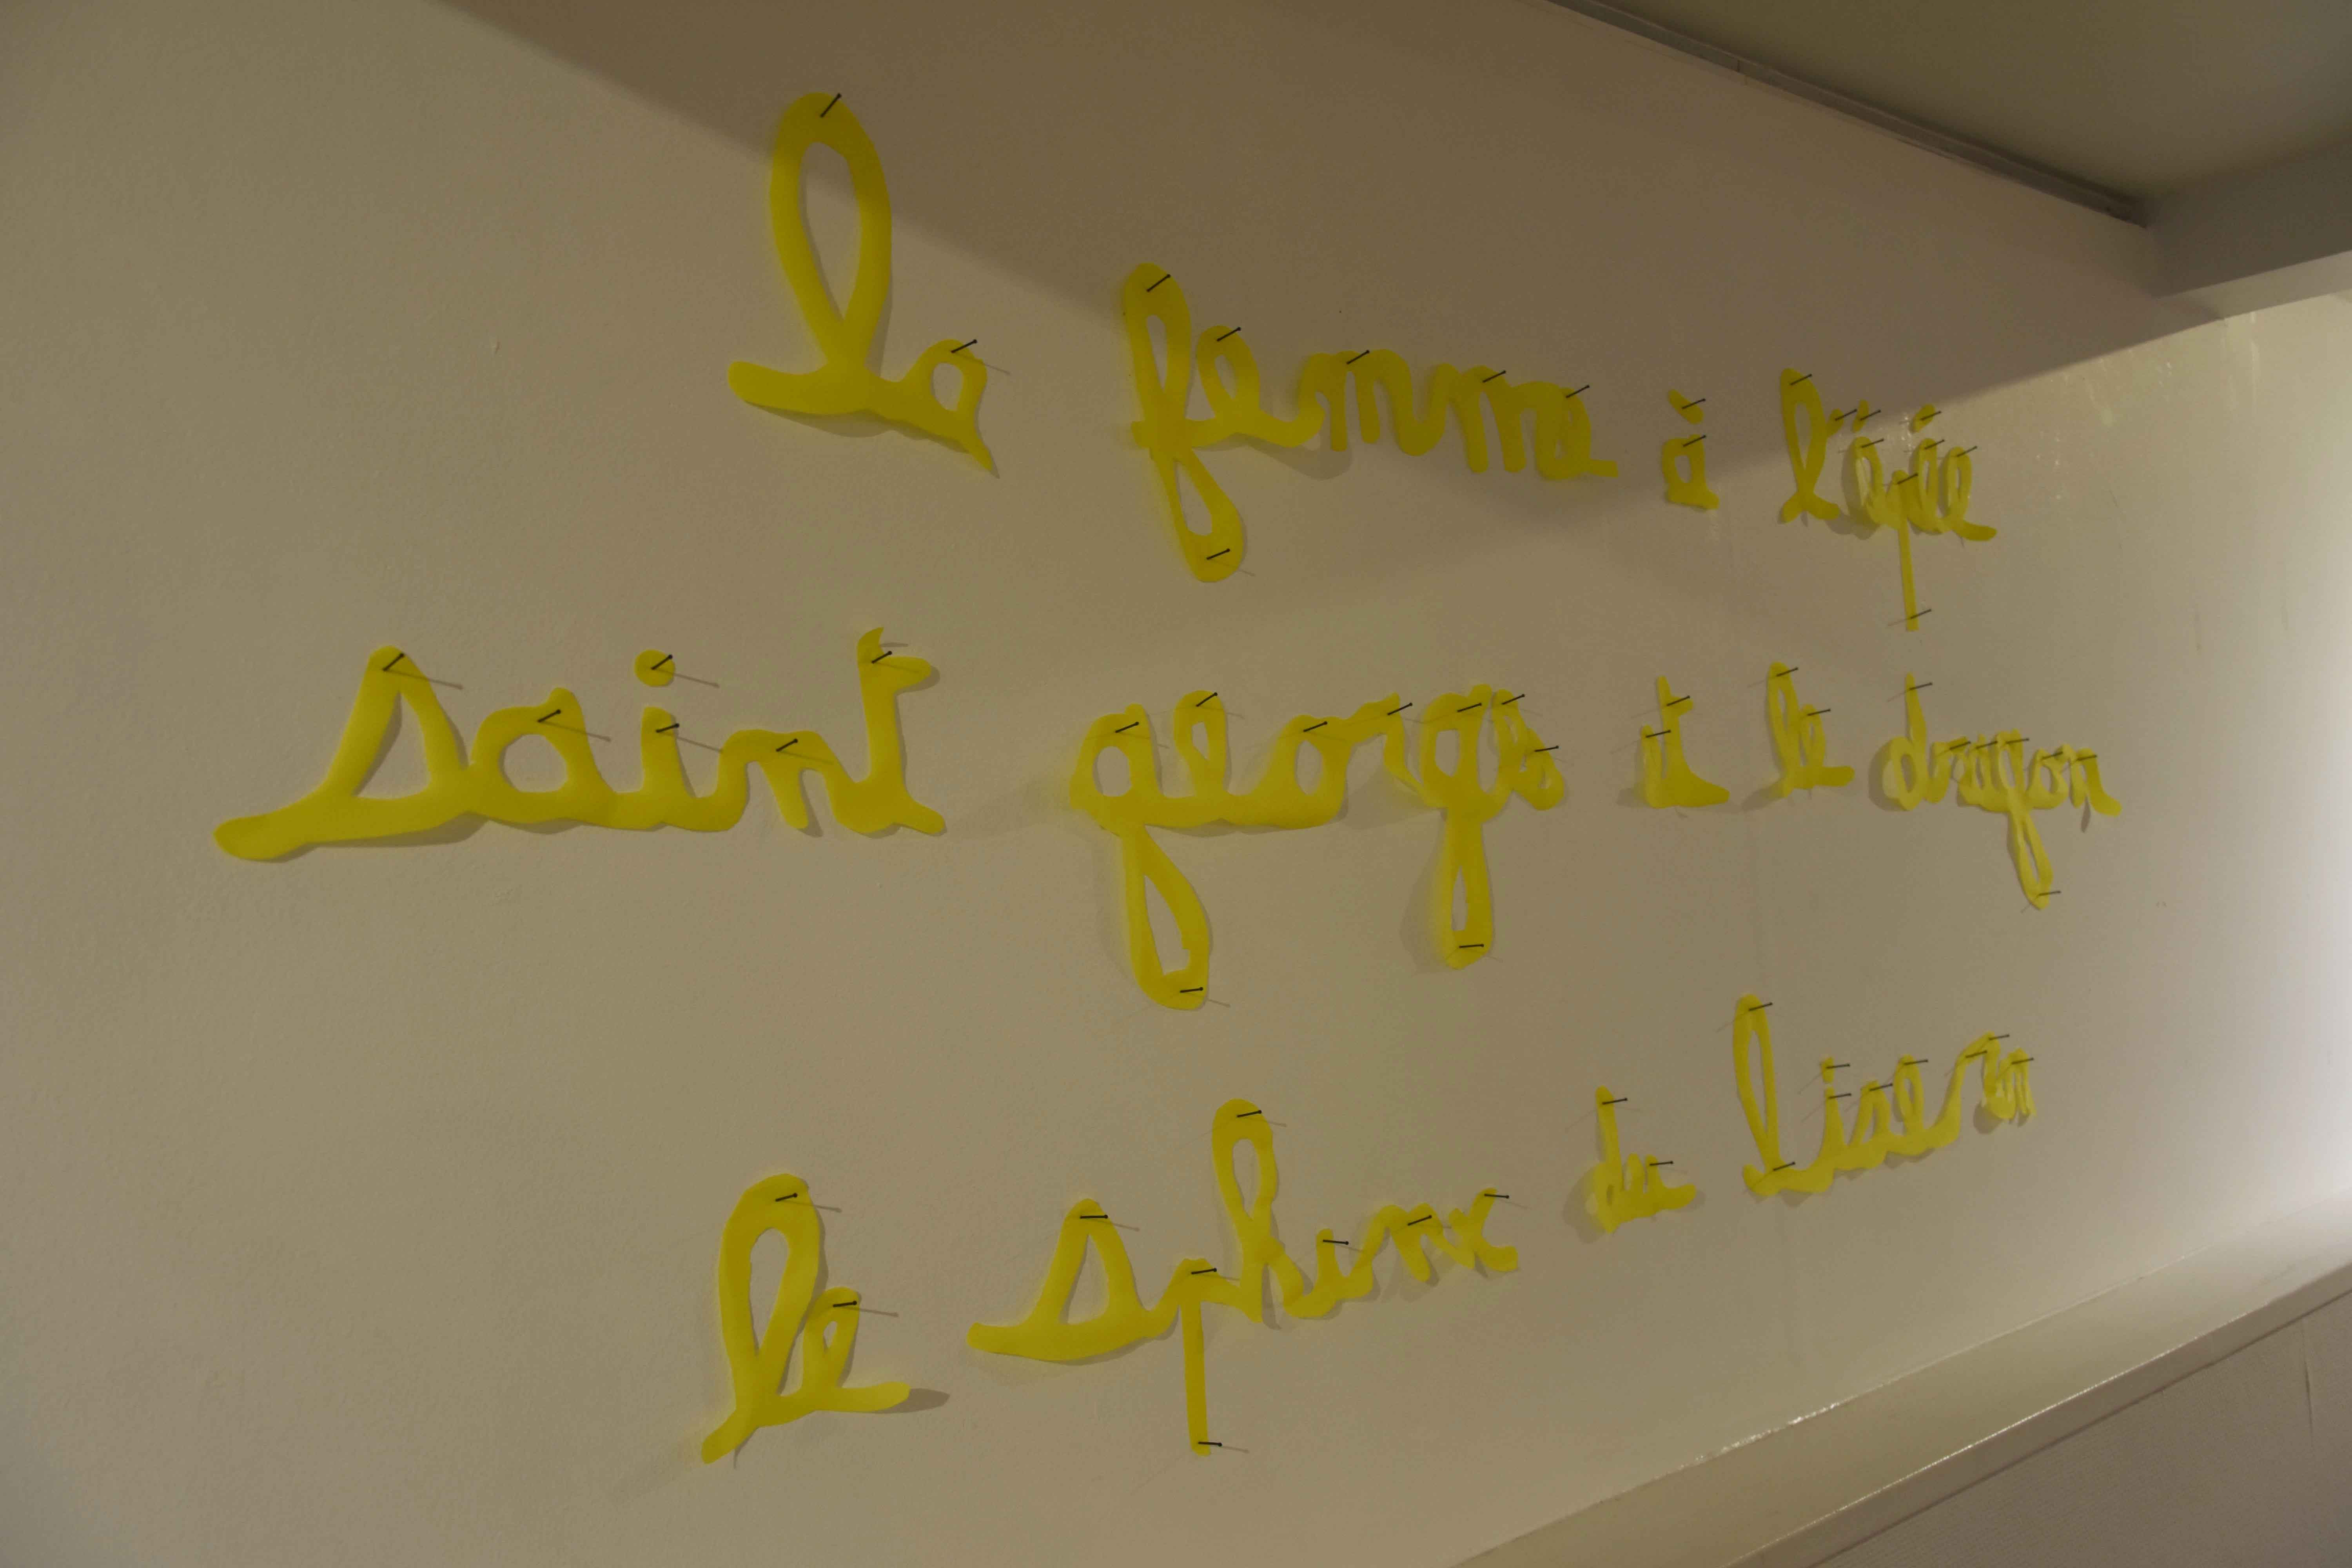 la femme à l'épée
saint georges et le dragon
le sphinx du liseron